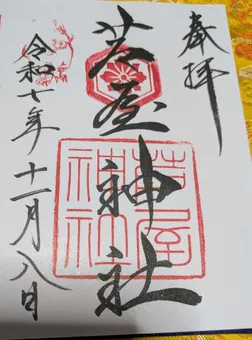 奉拝
芦屋神社
芦屋神社
令和七年十一月八日